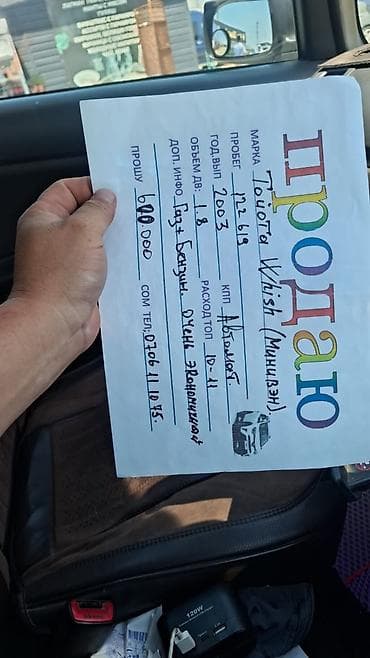 продаю
МАРКА Тойота Whish (Минивэн).
ПРОБЕГ 122 619 КПП Автомат.
ГОД.ВЫП 2003 РАСХОД ТОП 10-11
ОБЪЕМ ДВ: 1.8
ДОП. ИНФО Газ+Бензин. Очень экономичная
ПРОШУ 600.000 СОМ ТЕЛ: 0706 11 10 75.
120W